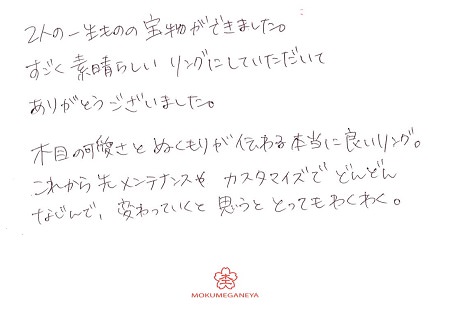 2人の一生ものの宝物ができました。
すごく素晴らしいリングにしていただいて
ありがとうございました。
木目の可愛さとぬくもりが伝わる本当に良いリング。
これから先メンテナンスや カスタマイズで どんどん
なじんで、変わっていくと思うと とってもわくわく。
MOKUMEGANEYA